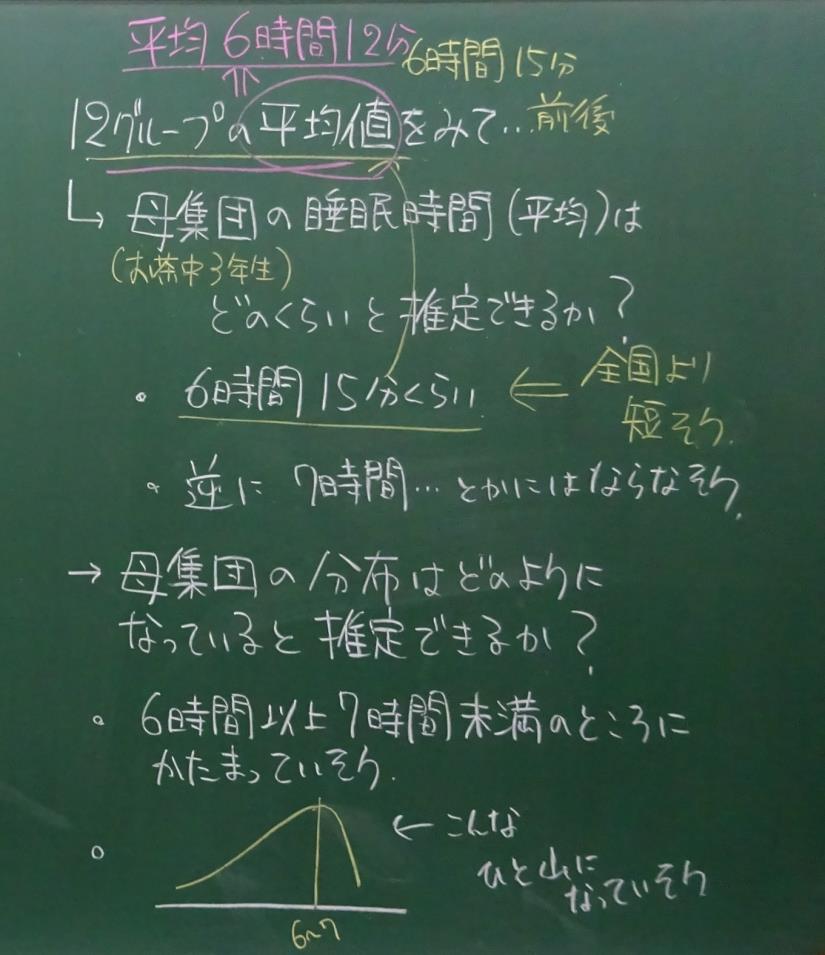 平均6時間12分
6時間15分
12グループの平均値をみて…前後
母集団の睡眠時間(平均)は
(お茶中3年生)
どのくらいと推定できるか?
・6時間15分くらい ⇐ 全国より
短そう.
・逆に 7時間…とかにはならなそう.
→ 母集団の分布はどのように
なっていると推定できるか?
○ 6時間以上7時間未満のところに
かたまっていそう.
○ ← こんな
ひと山に
なっていそう
6~7